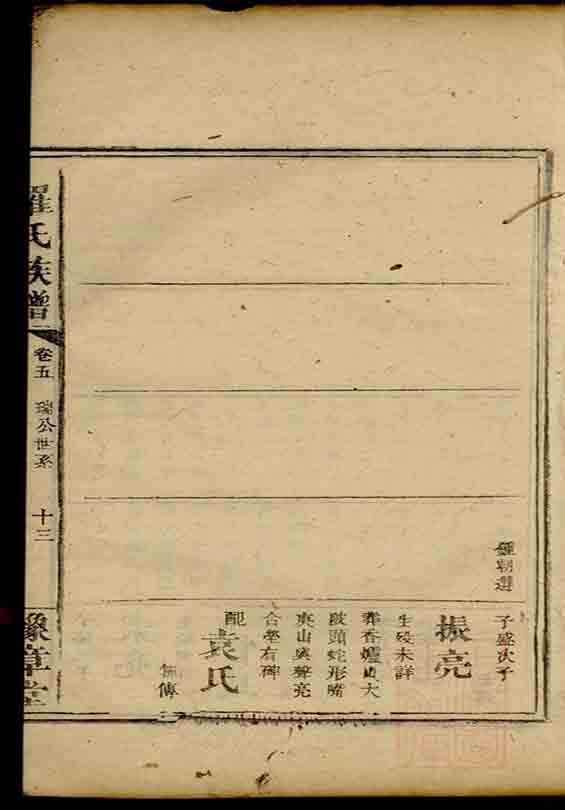 朝選
子盛次子
振亮
生歿未詳
葬香爐山大
陂頭蛇形嘴
亥山與聲亮
合塋有碑
配
袁氏
無傳
羅氏族譜
卷五
瑞公世系
十三
豫章堂